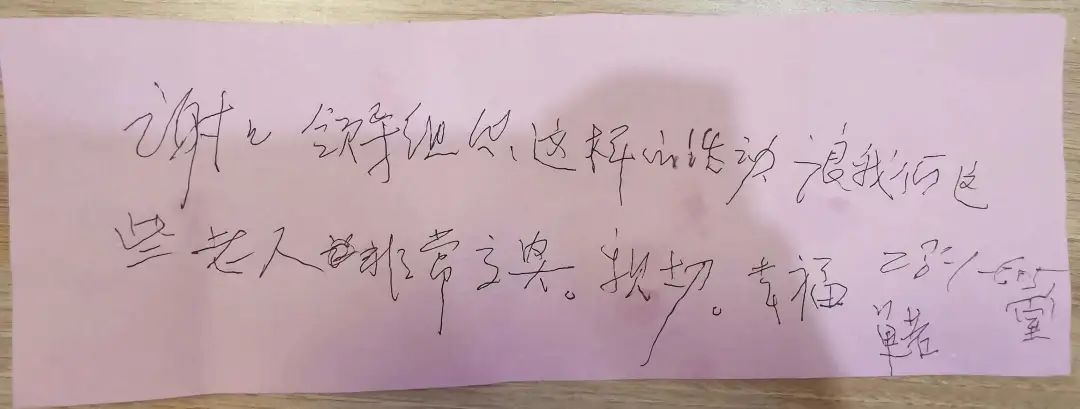 谢谢领导组织这样的活动 让我们这
些老人非常高兴。亲切。幸福